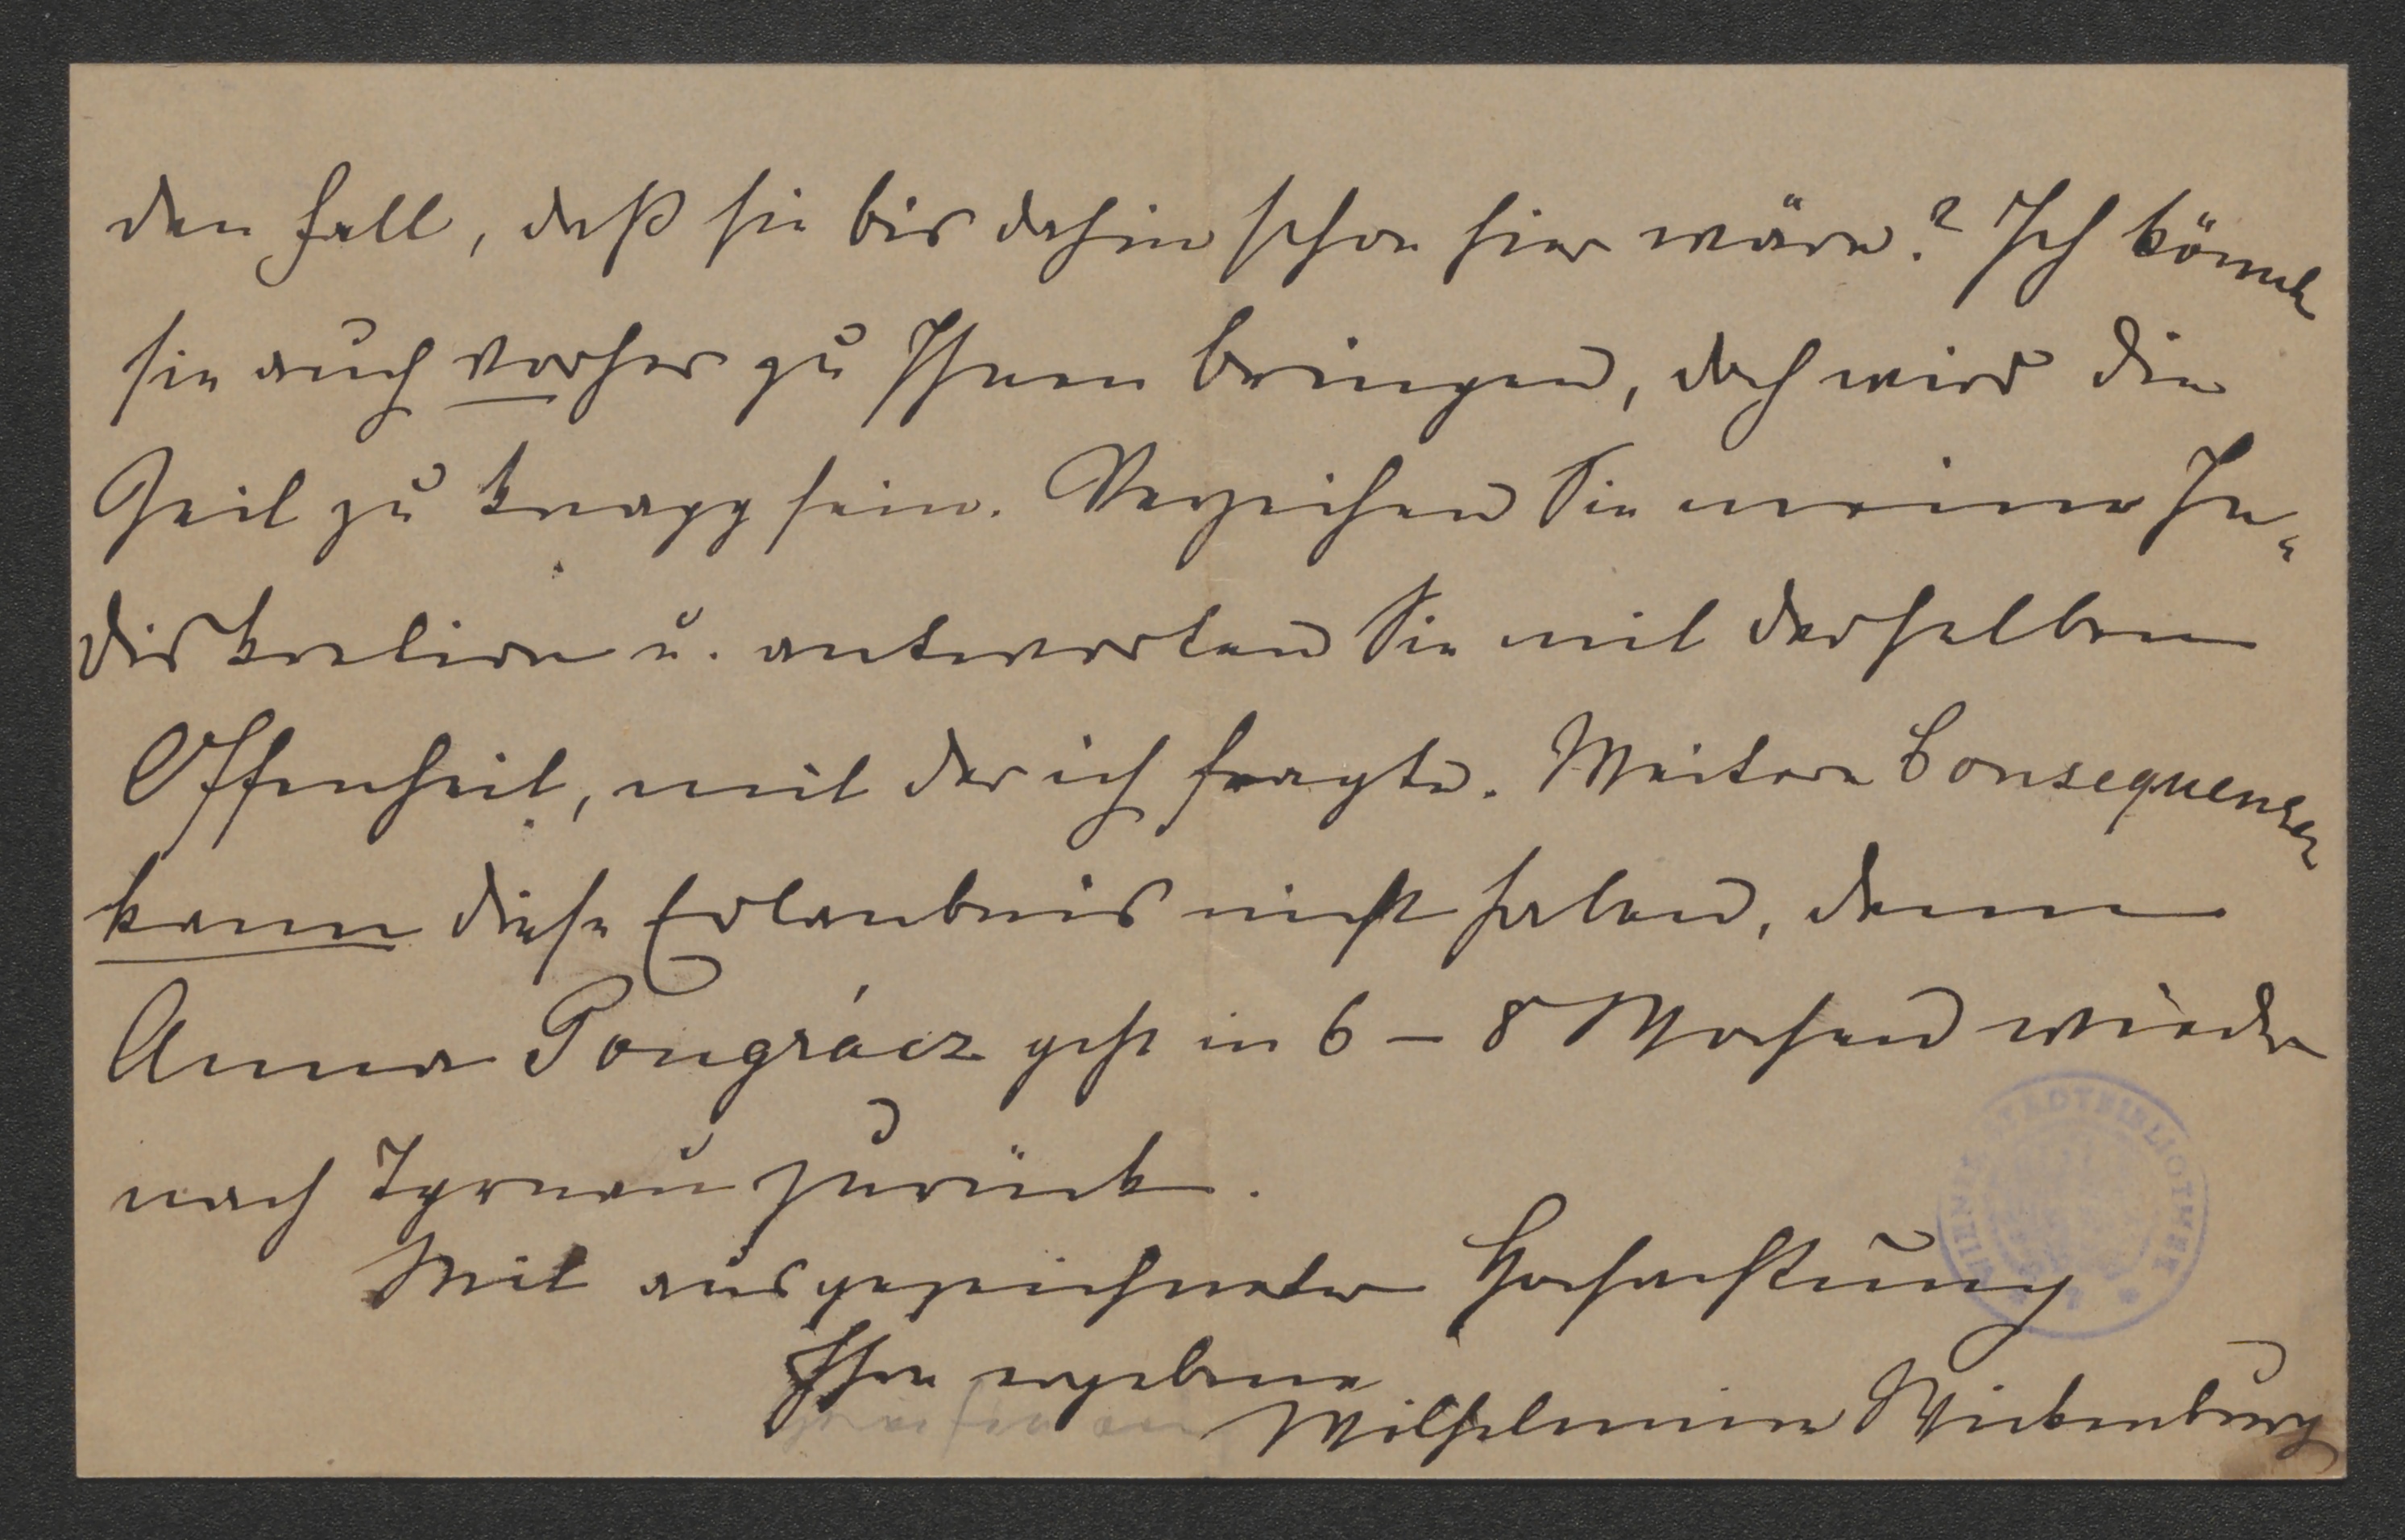 den Fall, daß sie bis dahin schon hier wäre? Ich könnte
sie auch vorher zu Ihnen bringen, doch wird die
Zeit zu knapp sein. Verzeihen Sie meine In-
diskretion u. antworten Sie mit derselben
Offenheit, mit der ich fragte. Weitere Consequenzen
kann diese Erlaubnis nicht haben, denn
Anna Pongrácz geht in 6 – 8 Wochen wieder
nach Tyrnau zurück.
Mit ausgezeichneter Hochachtung
Ihre ergebene
Wilhelmine Wickenburg
WIENER STADTBIBLIOTHEK